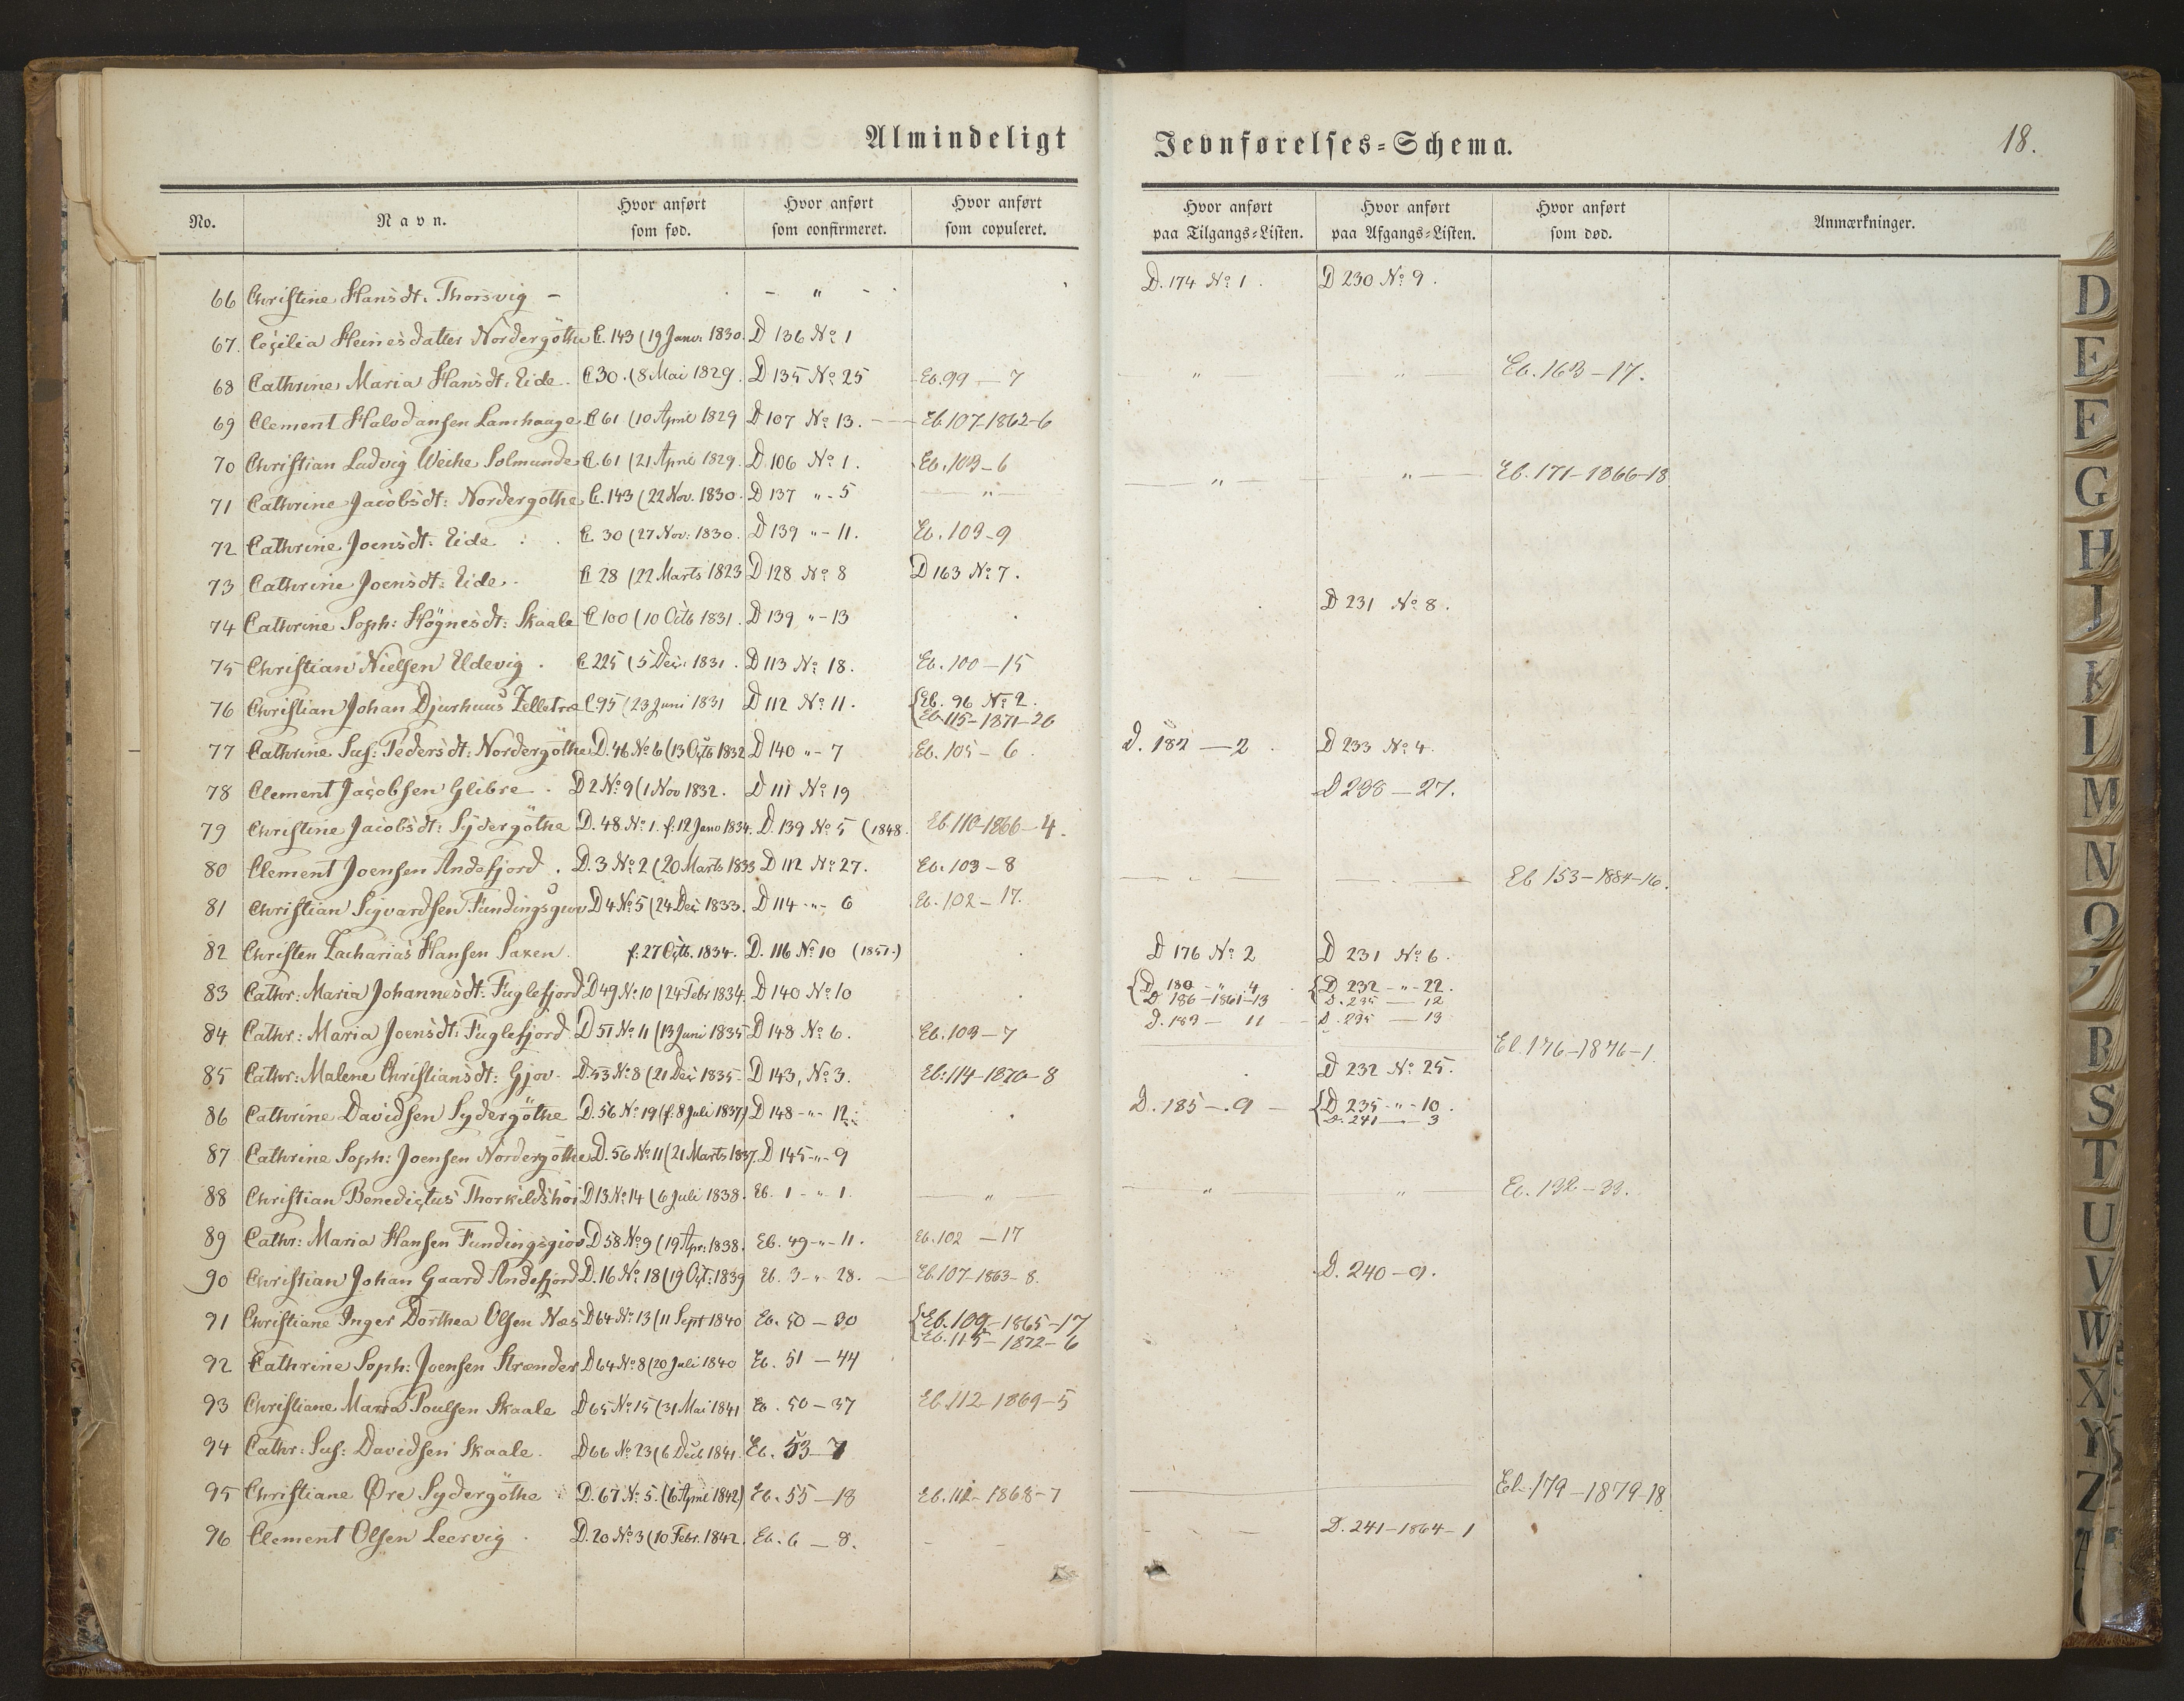 Almindeligt Jevnførelses-Schema. 18.
No. Navn. Hvor anført som fød. Hvor anført som confirmeret. Hvor anført som copuleret. Hvor anført paa Tilgangs-Listen. Hvor anført paa Afgangs-Listen. Hvor anført som død. Anmærkninger.
66 Christine Hansdt: Thorsvig - - " - D. 174 No 1. D 230 No 9.
67. Cecilia Heinesdatter Nordergöthe C. 143 (19 Janu: 1830. D 136 No 1
68 Cathrine Maria Hansdt: Eide. C 30. (8 Mai 1829. D 135 No 25 Eb. 99 — 7 " " Eb. 163 - 17.
69 Clement Halvdansen Lamhauge C 61 (10 April 1829 D 107 No 13. Eb 107-1862-6
70 Christian Ludvig Weihe Solmunde C. 61 (21 April 1829. D 106 No 1. Eb. 103-6
71 Cathrine Jacobsdt: Nordergöthe C. 143 (22 Nov. 1830. D 137 " - 5 — " — — " — — " — Eb. 171-1866-18
72 Cathrine Joensdt: Eide C. 30 (27 Nov: 1830. D 139 " - 11. Eb. 103-9
73 Cathrine Joensdt: Eide. C 28 (22 Marts 1823 D 128 No 8 D 163 No 7.
74 Cathrine Soph: Högnesdt: Skaale C 100 (10 Octb 1831. D 139 " - 13 D 231 No 8.
75 Christian Nielsen Eldevig. C 225 (5 Dec: 1831. D 113 No 18. Eb. 100-15
76 Christian Johan Djurhuus Zelletræ C 95 (23 Juni 1831 D 112 No 11. {Eb. 96 No 2.
Eb 115-1871-26
77 Cathrine Sus: Pedersdt: Nordergöthe D. 46 No 6 (13 Octb 1832 D 140 " - 7 Eb. 105 - 6. D. 182 — 2 D 233 No 4.
78 Clement Jacobsen Glibre. D 2 No 9 (1 Nov 1832. D 111 No 19 D 238 - 27.
79 Christine Jacobsdt: Sydergöthe D. 48. No 1. f: 12 Janv 1834. D. 139 No 5 (1848. Eb 110-1866-4.
80 Clement Joensen Andefjord. D. 3 No 2 (20 Marts 1833 D 112 No 27. Eb. 103-8 Eb 153-1884-16.
81 Christian Sigvardsen Fundingsgiov D 4 No 5 (24 Dec 1833. D 114 - " - 6 Eb. 102 - 17.
82 Christen Zacharias Hansen Saxen. f: 27 Octb. 1834. D. 116 No 10 (1851.) D 176 No 2 D 231 No 6.
83 Cathr: Maria Johannesdt: Fuglefjord D 49 No 10 (24 Febr 1834. D 140 No 10 {D. 180 - " 4 {D 232 - " - 22.
D 186-1861-13 D. 235 — 12
84 Cathr: Maria Joensdt: Fuglefjord D 51 No 11 (13 Juni 1835 D 148 No 6. Eb. 103-7 D. 183 — 11 D. 235 — 13
85 Cathr: Malene Christiansdt: Gjov. D. 53 No 8 (21 Dec 1835. D 143, No 3. Eb. 114-1870-8 D 232 No 25. Eb. 176-1876-1.
86 Cathrine Davidsen Sydergöthe D. 56 No 19 (f. 8 Juli 1837) D 148 - " - 12. D. 185 - 9 {D 235 - " - 10.
D. 241 — 3
87 Cathrine Soph: Joensen Nordergöthe D. 56 No 11 (21 Marts 1837. D 145 - " - 9
88 Christian Benedictus Thorkildshöi D 13 No 14 (6 Juli 1838. Eb. 1 - " 1. " " " Eb. 132 - 33.
89 Cathr: Maria Hansen Fundingsgiov D 58 No 9 (19 Apr: 1838. Eb. 49 - " - 11. Eb. 102 — 17
90 Christian Johan Gaard Andefjord D. 16 No 18 (19 Oct: 1839 Eb. 3 - " - 28. Eb. 107-1863-8. D. 240 - 9.
91 Christiane Inger Dorthea Olsen Næs D 64 No 13 (11 Sept 1840 Eb. 50 - 30 {Eb. 109-1865-17
Eb. 115-1872-6
92 Cathrine Soph: Joensen Strænder D 64 No 8 (20 Juli 1840 Eb. 51 - 44
93 Christiane Maria Poulsen Skaale D 65 No 15 (31 Mai 1841 Eb. 50 - 37 Eb. 112-1869-5
94 Cathr: Sus: Davidsen Skaale. D 66 No 23 (6 Decb 1841. Eb. 53 - 7
95 Christiane Øre Sydergöthe D. 67 No 5. (6 April 1842) Eb. 55 - 18 Eb. 112-1868-7 Eb. 179-1879-18
96 Clement Olsen Leervig D. 20 No 3 (10 Febr. 1842. Eb. 6 - 8. D. 241-1864-1
D
E
F
G
H
J
K
L
M
N
O
B
S
T
U
V
W
X
Y
Z